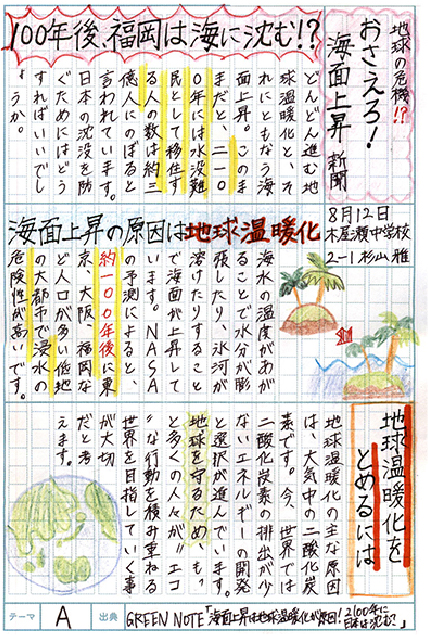 地球の危機!?
おさえろ!
海面上昇 新聞
8月12日
木屋瀬中学校
2-1 杉山 雅
100年後、福岡は海に沈む!?
どんどん進む地
球温暖化と、そ
れにともなう海
面上昇。このま
まだと二一〇
〇年には水没難
民として移住す
る人の数は約三
億人にのぼると
言われています。
日本の沈没を防
ぐためにはどう
すればいいでし
ょうか。
海面上昇の原因は地球温暖化
海水の温度があが
ることで水分が膨
張したり、氷河が
溶けたりすること
で海面が上昇して
います。NASA
の予測によると、
約一〇〇年後に東
京、大阪、福岡な
ど人口が多い低地
の大都市で浸水の
危険性が高いです。
地球温暖化を
とめるには
地球温暖化の主な原因
は、大気中の二酸化炭
素です。今、世界では
二酸化炭素の排出が少
ないエネルギーの開発
と選択が進んでいます。
地球を守るため、もっ
と多くの人々が〝エコ
〟な行動を積み重ねる
世界を目指していく事
が大切
だと考
えます。
テーマ A 出典 GREEN NOTE「海面上昇は地球温暖化が原因!2100年に
日本は沈む?」